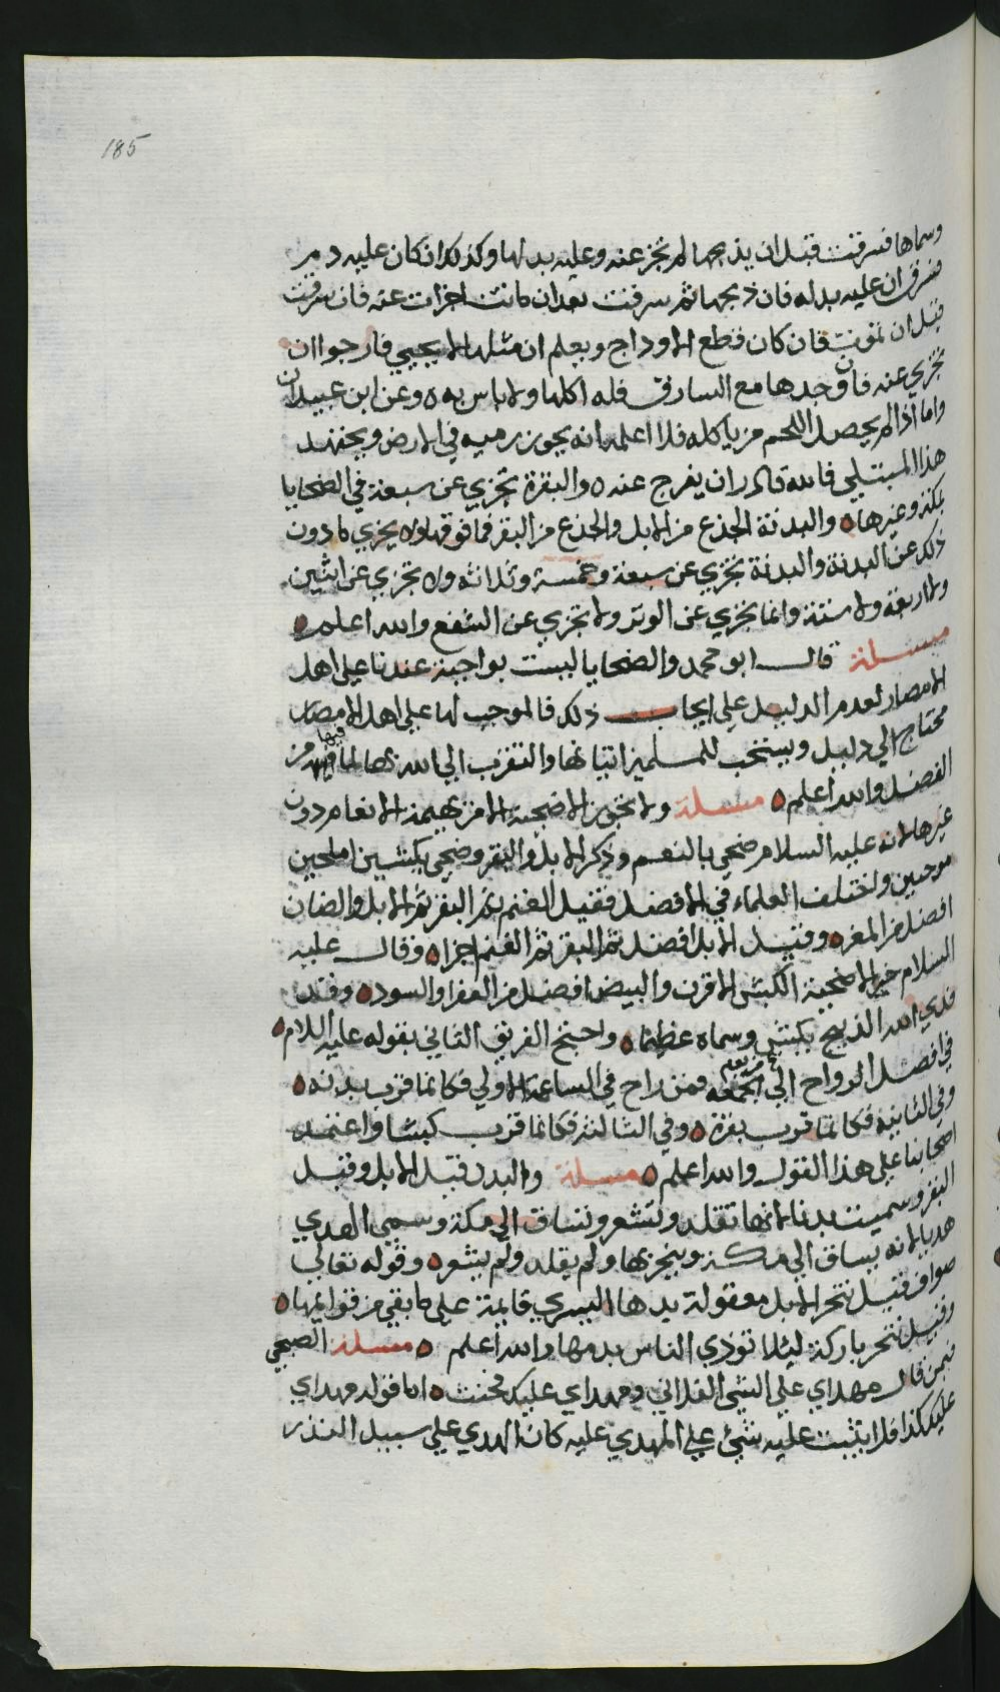 185
وسماها فسرقت قبل ان يذبحها لم تجز عنه وعليه بدلها وكذلك ان كان عليه دم
فسرق ان عليه بدله فان ذبحها ثم سرقت بعد ان ماتت اجزات عنه فان سرقت
قبل ان تموت فان كان قطع الاوداج ويعلم ان مثلها لا يحيي فارجوا ان
تجزي عنه فان وجدها مع السارق فله اكلها ولا باس به ه وعن ابن عبيدان
واما اذا لم يحصل اللحم من ياكله فلا اعلم انه يجوز رميه في الارض ويجتهد
هذا المبتلي فالله قادر ان يفرج عنه ه والبقرة تجزي عن سبعة في الضحايا
بمكة وغيرها ه والبدنة الجذع من الابل والجذع من البقر فما فوقها ولا يجزي ما دون
ذلك عن البدنة والبدنة تجزي عن سبعة وخمسة وثلاثة ولا تجزي عن اثنين
ولا اربعة ولا ستة وانما تجزي عن الوتر ولا تجزي عن الشفع والله اعلم ه
مسئلة قال ابو محمد والضحايا ليست بواجبة عندنا علي اهل
الامصار لعدم الدليل علي ايجاب ذلك فالموجب لها علي اهل الامصار
محتاج الي دليل ويستحب للمسلمين اتيانها والتقرب الي الله بها لما فيها من
الفضل والله اعلم ه مسئلة ولا تجوز الاضحية الا من بهيمة الانعام دون
غيرها لانه عليه السلام ضحي بالنعم وذكر الابل والبقر وضحي بكبشين املحين
موجين واختلف العلماء في الافضل فقيل الغنم ثم البقر ثم الابل والضان
افضل من المعز ه وقيل الابل افضل ثم البقر ثم الغنم اجزا ه وقال عليه
السلام خير الاضحية الكبش الاقرن والبيض افضل من العفر والسود ه وقد
فدي الله الذبيح بكبش وسماه عظيما ه واحتج الفريق الثاني بقوله عليه السلام ه
في افضل الرواح الي الجمعة فمن راح في الساعة الاولي فكانما قرب بدنة ه
وفي الثانية فكانما قرب بقرة ه وفي الثالثة فكانما قرب كبشا واعتمد
اصحابنا علي هذا القول والله اعلم ه مسئلة والبدن قبل الابل وقيل
البقر وسميت بدنا لانها تقلد وتشعر وتساق الي مكة وسمي الهدي
هديا لانه يساق الي مكة وينحر بها ولم يقلد ولم يشعر ه وقوله تعالي
صواف فقيل تنحر الابل معقولة يدها اليسري قايمة علي ما بقي من قوايمها ه
وقيل تنحر باركة ليلا توذي الناس بدمها والله اعلم ه مسئلة الصبحي
فيمن قال مهداي علي الشي الفلاني ومهداي عليك فحنث ه اما قوله مهداي
عليك كذا فلا يثبت عليه شيئ علي المهدي عليه كان الهدي علي سبيل النذر